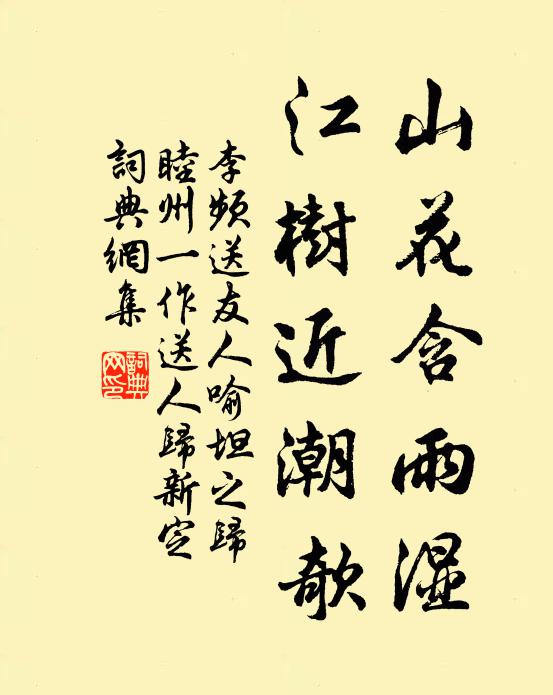 山花含雨湿
江樹近潮欹
李頻送友人喻坦之歸
睦州一作送人歸新定
詞典網集
詞典
网印